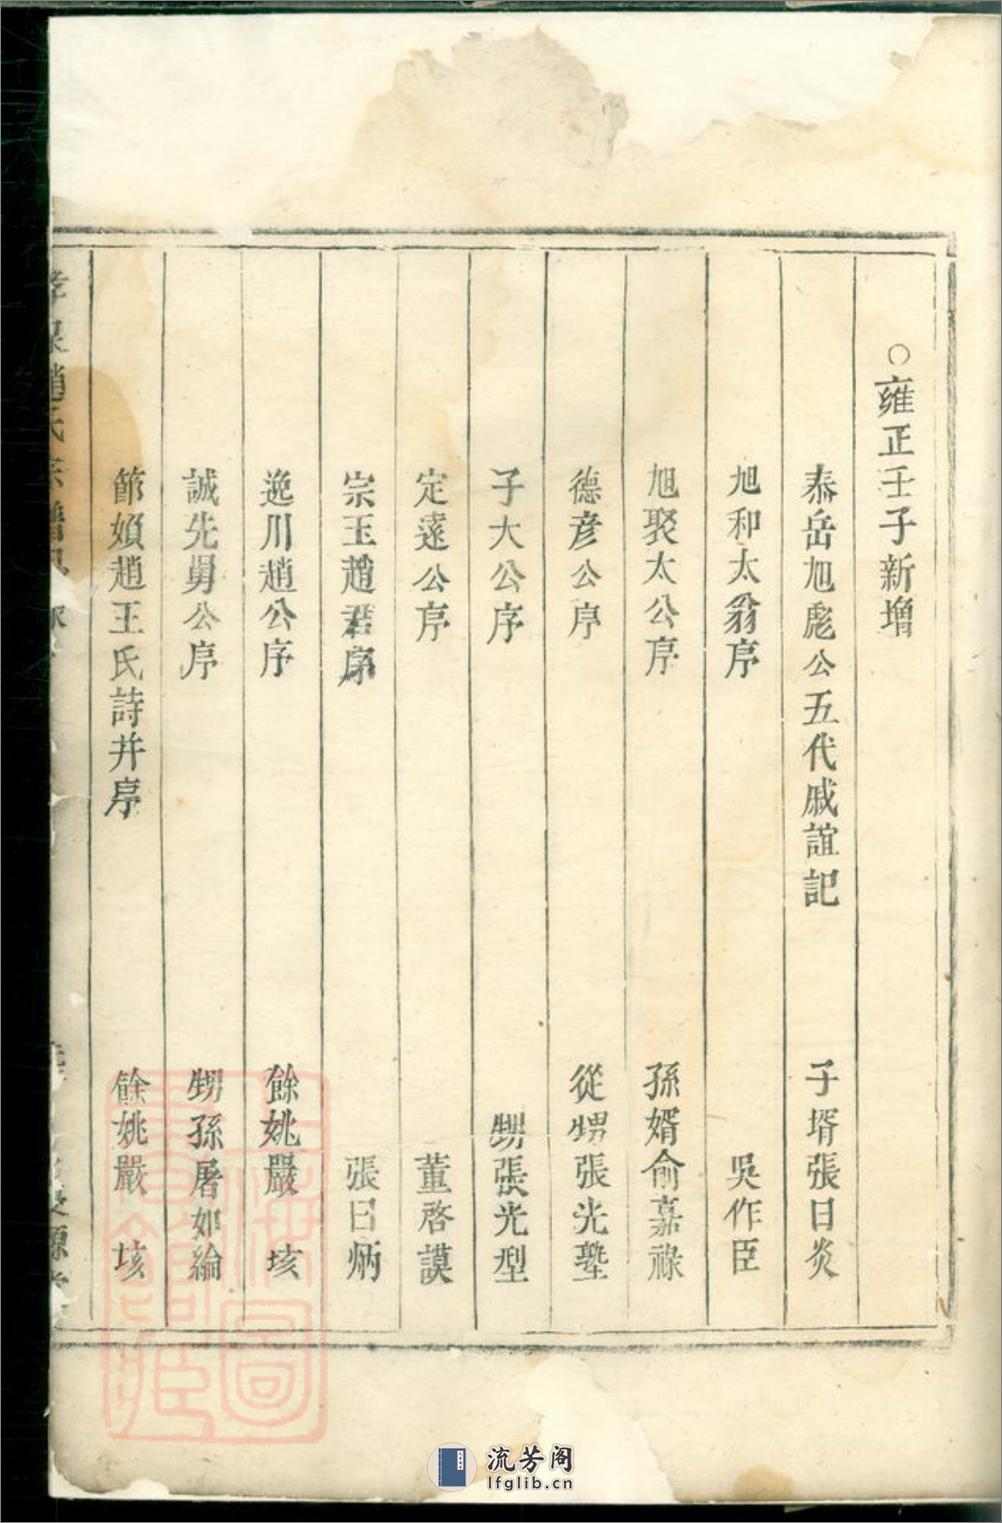 ○雍正壬子新增
泰岳旭彪公五代戚誼記 子壻張日炎
旭和太翁序 吳作臣
旭聚太公序 孫婿俞嘉祿
德彥公序 從甥張光塾
子大公序 甥張光型
定遠公序 董啓謨
宗玉趙君序 張日炳
逸川趙公序 餘姚嚴 垓
誠先舅公序 甥孫屠如綸
節婦趙王氏詩并序 餘姚嚴 垓
趙氏宗譜
流芳阁
lfglib.cn